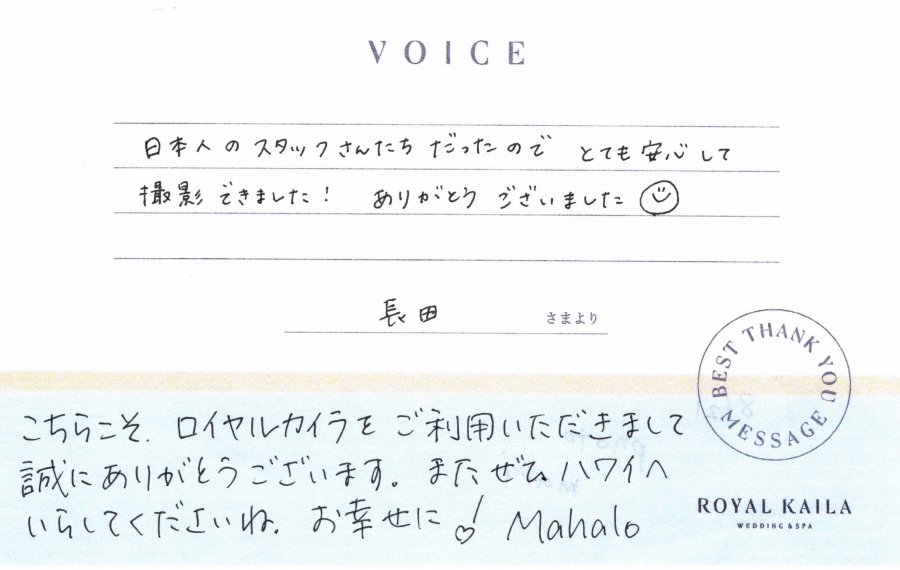 VOICE
日本人のスタッフさんたちだったので とても安心して
撮影できました! ありがとうございました
長田 さまより
BEST THANK YOU MESSAGE
こちらこそ、ロイヤルカイラをご利用いただきまして
誠にありがとうございます。またぜひハワイへ
いらしてくださいね。お幸せに! Mahalo
ROYAL KAILA
WEDDING & SPA